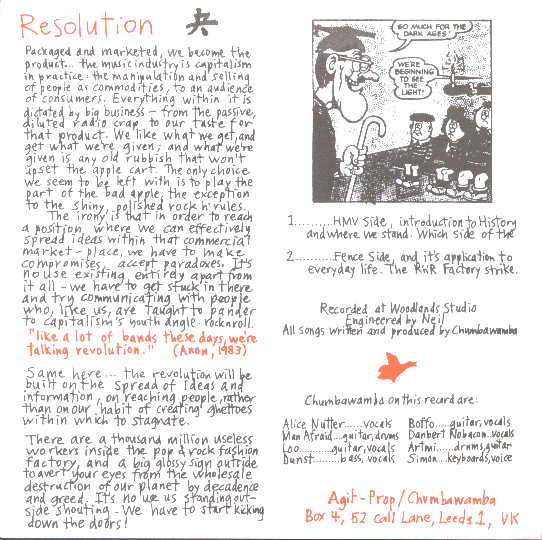 Resolution 兵
Packaged and marketed, we become the
product... the music industry is capitalism
in practice: the manipulation and selling
of people as commodities, to an audience
of consumers. Everything within it is
dictated by big business - from the passive,
diluted radio crap to our taste for
that product. We like what we get, and
get what we're given; and what we're
given is any old rubbish that won't
upset the apple cart. The only choice
we seem to be left with is to play the
part of the bad apple, the exception
to the shiny, polished rock n' rules.
The irony is that in order to reach
a position, where we can effectively
spread ideas within that commercial
market-place, we have to make
compromises, accept paradoxes. It's
no use existing entirely apart from
it all - we have to get stuck in there
and try communicating with people
who, like us, are taught to pander
to capitalism's youth angle: rocknroll.
"like a lot of bands these days, we're
talking revolution." (Anon, 1983)
Same here... the revolution will be
built on the spread of ideas and
information, on reaching people, rather
than on our habit of creating ghettoes
within which to stagnate.
There are a thousand million useless
workers inside the pop & rock fashion
factory, and a big glossy sign outside
to avert your eyes from the wholesale
destruction of our planet by decadence
and greed. It's no use us standing out-
side shouting - We have to start kicking
down the doors!
SO MUCH FOR THE
DARK AGES!
WE'RE
BEGINNING
TO SEE
THE
LIGHT!
1..........HMV Side, introduction to History
and where we stand. Which side of the
2..........Fence Side, and it's application to
everyday life. The R'n'R Factory strike.
Recorded at Woodlands Studio
Engineered by Neil
All songs written and produced by Chumbawamba
Chumbawamba on this record are:
Alice Nutter......vocals
Man Afraid....guitar, drums
Lou..........guitar, vocals
Dunst........bass, vocals
Boffo.....guitar, vocals
Danbert Nobacon..vocals
.......drums, guitar
Simon...keyboards, voice
Agit-Prop/Chumbawamba
Box 4, 52 Call Lane, Leeds 1, UK